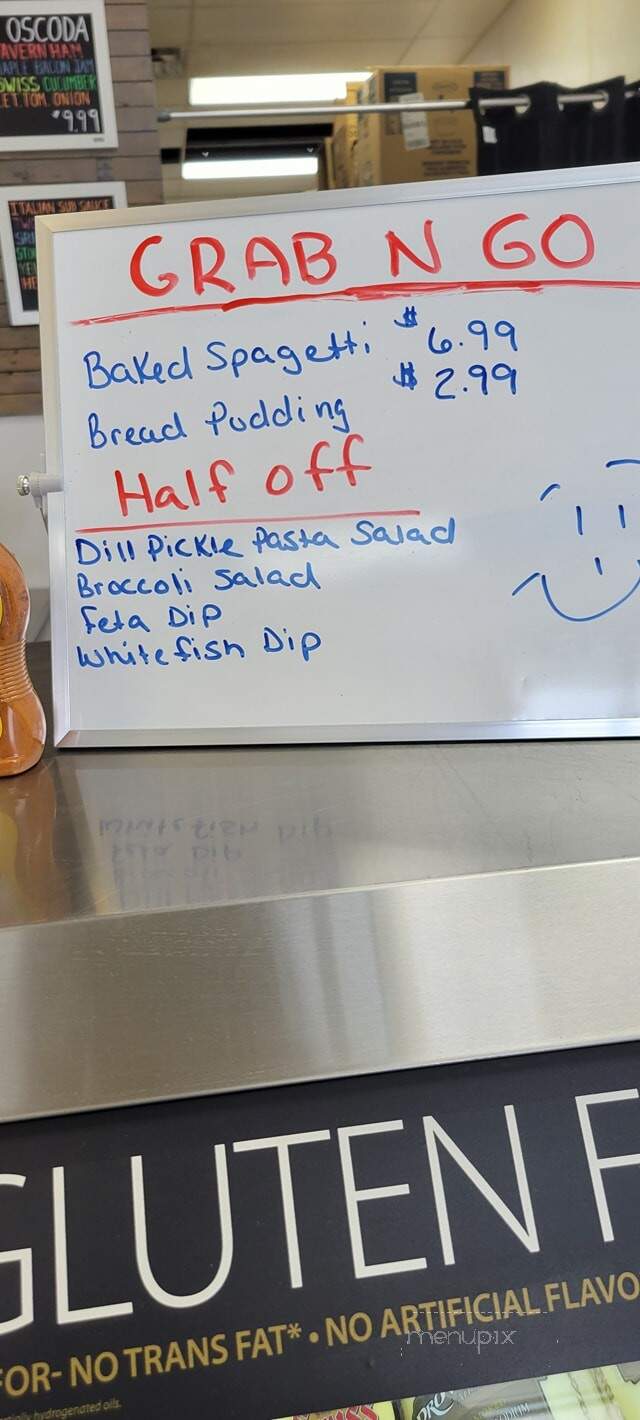 OSCODA
TAVERN HAM
MAPLE BACON JAM
SWISS CUCUMBER
LET.TOM.ONION
$9.99
ITALIAN SUB SAUCE
GRAB N GO
Baked Spagetti $6.99
Bread Pudding $2.99
Half off
Dill Pickle Pasta Salad
Broccoli Salad
Feta Dip
Whitefish Dip
GLUTEN F
FOR- NO TRANS FAT* • NO ARTIFICIAL FLAVO
ially hydrogenated oils.
menupix